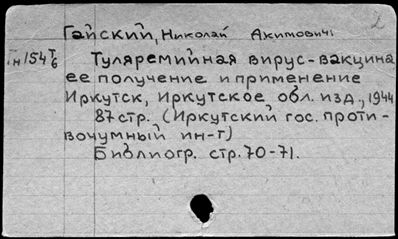 Гайский, Николай Акимович
Гн154 Т/6 Туляремийная вирус-вакцина
ее получение и применение
Иркутск, Иркутское обл. изд., 1944
87стр. (Иркутский гос. проти-
вочумный ин-т)
Библиогр. стр.70-71.